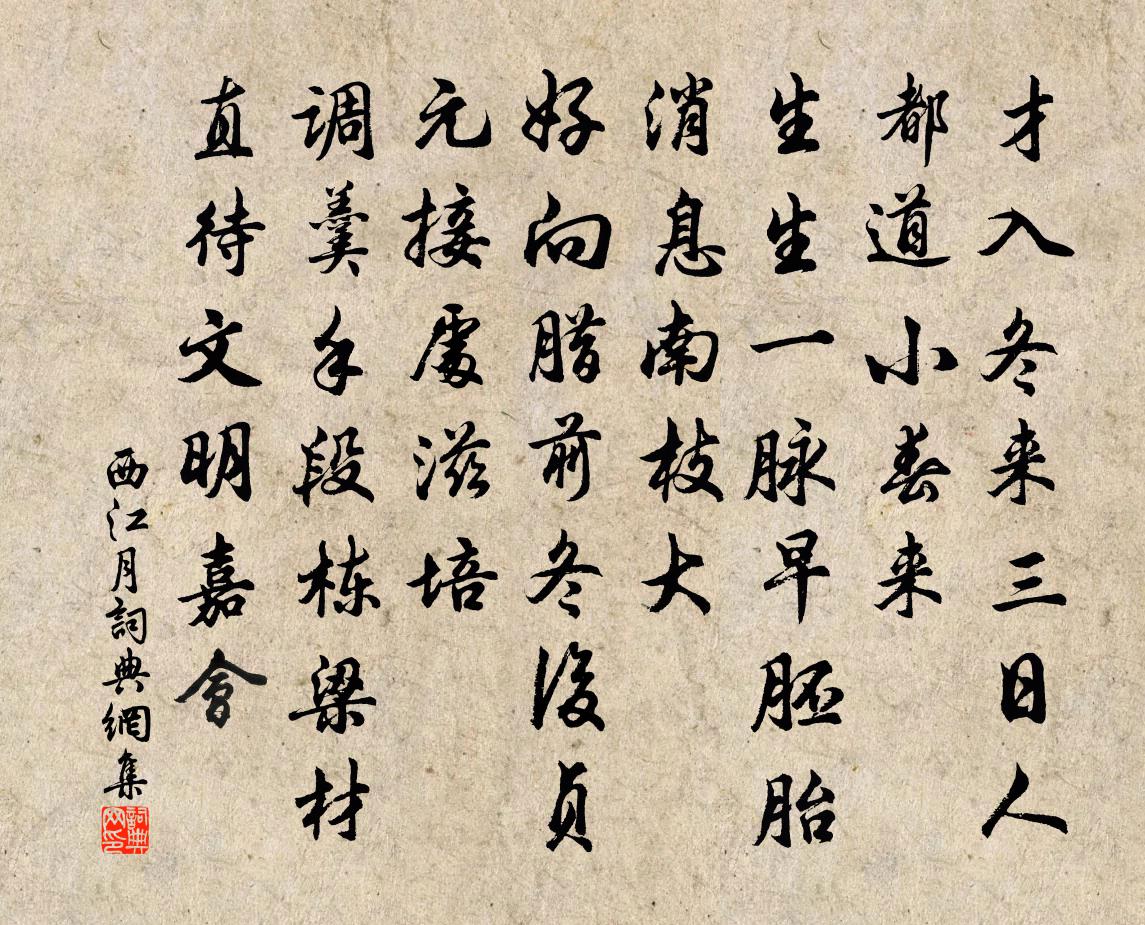 才入冬来三日人
都道小春来
生生一脉早胚胎
消息南枝大
好向腊前冬後贞
元接處滋培
调羹手段栋梁材
直待文明嘉會
西江月詞典網集
詞典网印